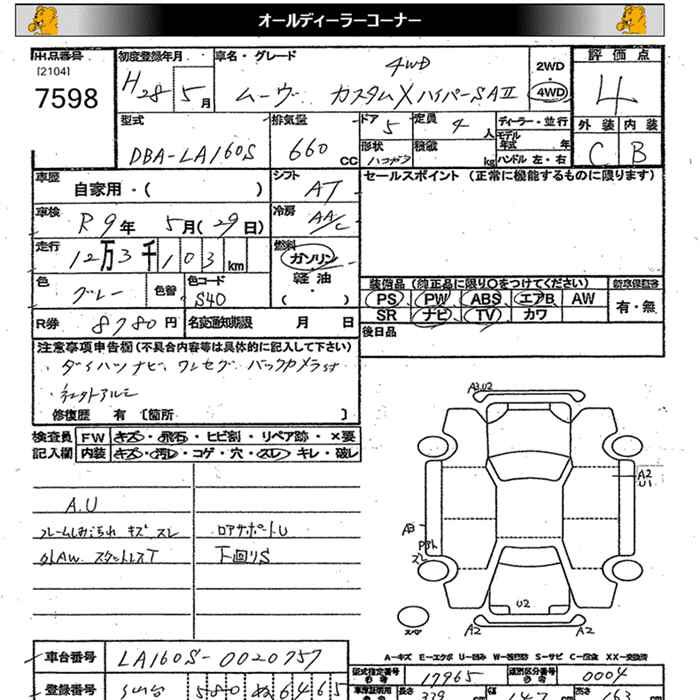 オールディーラーコーナー
出品番号 初度登録年月 車名・グレード 2WD ・ 4WD 評価点
[2104]
7598
H28 5月 ムーヴ カスタムXハイパーSAⅡ 4WD 4
型式 DBA-LA160S 排気量 660 CC ドア 5 定員 4人 ディーラー・並行
形状 ハコガタ 積載 kg モデル年式 年
ハンドル 左・右
外装 内装
C B
車歴 自家用・( ) シフト AT セールスポイント (正常に機能するものに限ります)
車検 R9年 5月(29日) 冷房 AA/C
走行 12万3千103km 燃料 ガソリン 軽油 ・( )
色 グレー 色替 色コード S40
装備品(純正品に限り○をつけてください) 新車保証書
PS PW ABS エアB AW 有・無
SR ナビ TV カワ
R券 8780円 名変通知期限 月 日 後日品
注意事項申告欄(不具合内容等は具体的に記入して下さい)
・ダイハツナビ、ワンセグ バックカメラ付
・社外アルミ
修復歴 有 [箇所 ]
検査員 FW キズ・飛石・ヒビ割・リペア跡・×要
記入欄 内装 キズ・汚レ・コゲ・穴・スレ・キレ・破レ
A.U
フレームしめこちれ キズ スレ ロアサポートU
外AW スタットレスT 下回りS
A3 U2
A2
U1
A3
スレ
U2
A2 A2
スペア
A-キズ E-エクボ U-凹み W-補修跡 S-サビ C-腐食 XX-交換済
車台番号 LA160S-0020757
型式指定番号 17965 類別区分番号 0004
登録番号 580 6465
長さ 339 cm 147 cm 高さ 163 cm